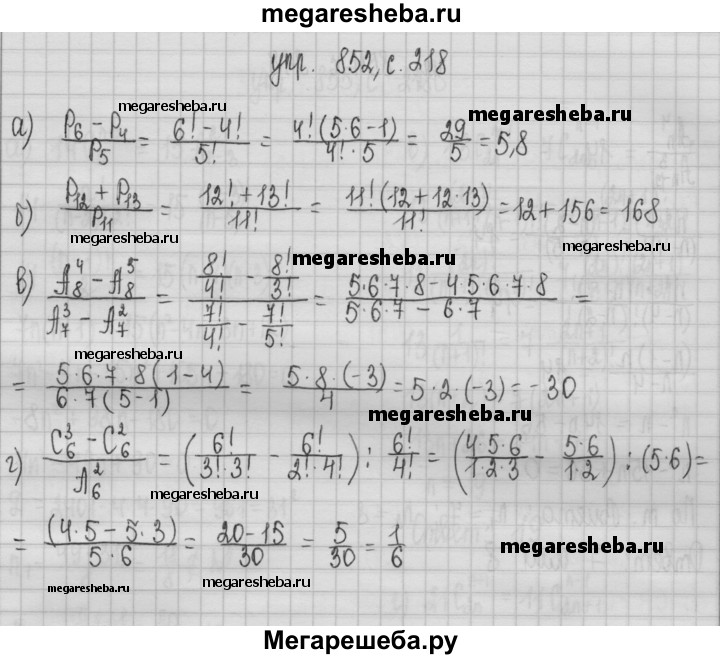 megaresheba.ru
упр. 852, с. 218
megaresheba.ru
megaresheba.ru
а) (P₆ − P₄)/P₅ = (6! − 4!)/5! = 4!(5·6−1)/(4!·5) = 29/5 = 5,8
megaresheba.ru
б) (P₁₂ + P₁₃)/P₁₁ = (12! + 13!)/11! = 11!(12+12·13)/11! = 12 + 156 = 168
megaresheba.ru
megaresheba.ru
megaresheba.ru
в) (A₈⁴ − A₈⁵)/(A₇³ − A₇²) = (8!/4! − 8!/3!)/(7!/4! − 7!/5!) = (5·6·7·8 − 4·5·6·7·8)/(5·6·7 − 6·7) =
megaresheba.ru
= 5·6·7·8(1−4)/(6·7(5−1)) = 5·8·(−3)/4 = 5·2·(−3) = −30
megaresheba.ru
г) (C₆³ − C₆²)/A₆² = (6!/(3!·3!) − 6!/(2!·4!)) : 6!/4! = (4·5·6/(1·2·3) − 5·6/(1·2)) : (5·6) =
megaresheba.ru
= (4·5 − 5·3)/(5·6) = (20−15)/30 = 5/30 = 1/6
megaresheba.ru
megaresheba.ru
megaresheba.ru
Мегарешеба.ру